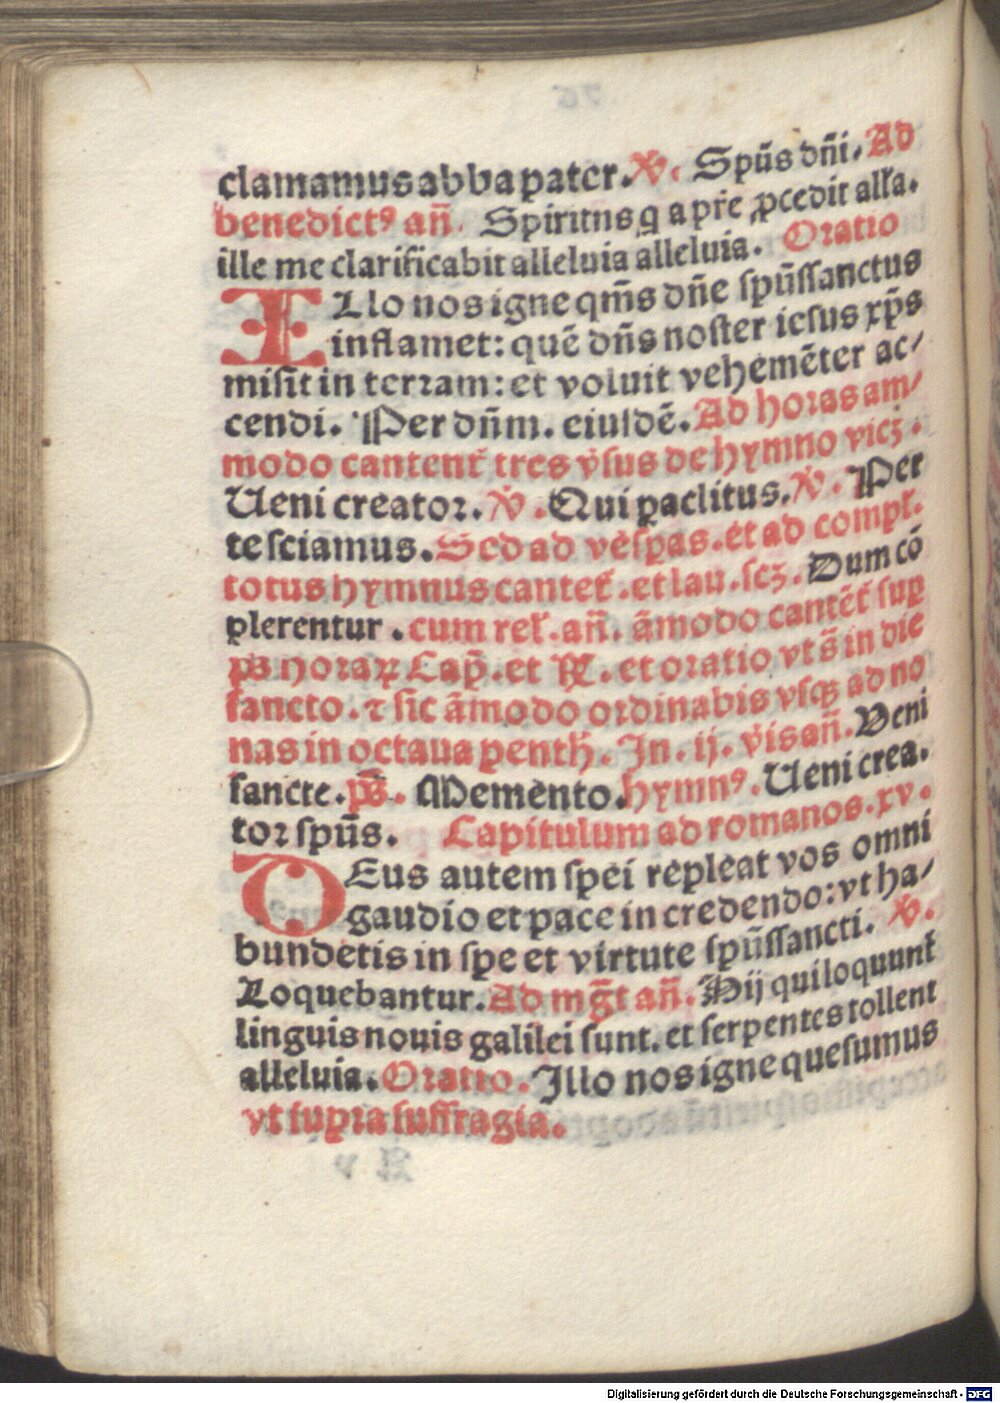 clamamus abba pater. ꝟ. Spūs dñi. Ad
benedictꝰ añ. Spiritus q̇ a pr̄e ꝓcedit alła.
ille me clarificabit alleluia alleluia. Oratio
ILlo nos igne qm̄s dñe spūssanctus
inflamet: quē dñs noster iesus xp̄s
misit in terram: et voluit vehemēter ac/
cendi. Per dñm. eiusdē. Ad horas am/
modo cantent̄ tres v̄sus de hymno vicꝫ.
Ueni creator. ꝟ. Qui ꝑaclitus. ꝟ. Per
te sciamus. Sed ad vesꝑas. et ad compł.
totus hymnus cantet̄. et lau. scꝫ. Dum cō
plerentur. cum reł. añ. āmodo cantēt̄ suꝑ
ps̄ horaꝝ Cap̄. et ℟. et oratio vt s̄ in die
sancto. ⁊ sic āmodo ordinabis vsqꝫ ad no
nas in octaua penth̄. In. ij. v̄is añ. Veni
sancte. ps̄. Memento. hymnꝰ. Ueni crea.
tor spūs. Capitulum ad romanos. xv.
DEus autem spei repleat vos omni
gaudio et pace in credendo: vt ha/
bundetis in spe et virtute spūssancti. ꝟ.
Loquebantur. Ad mḡt añ. Hij qui loquunt̄
linguis nouis galilei sunt. et serpentes tollent
alleluia. Oratio. Illo nos igne quesumus
vt supra suffragia.
Digitalisierung gefördert durch die Deutsche Forschungsgemeinschaft - DFG